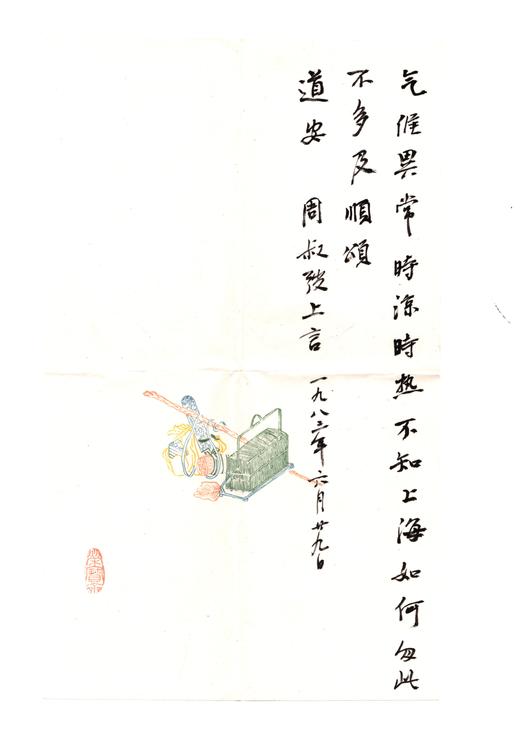 气候異常時涼時热不知上海如何匆此
不多及順頌
道安 周叔弢上言 一九八三年六月廿九日